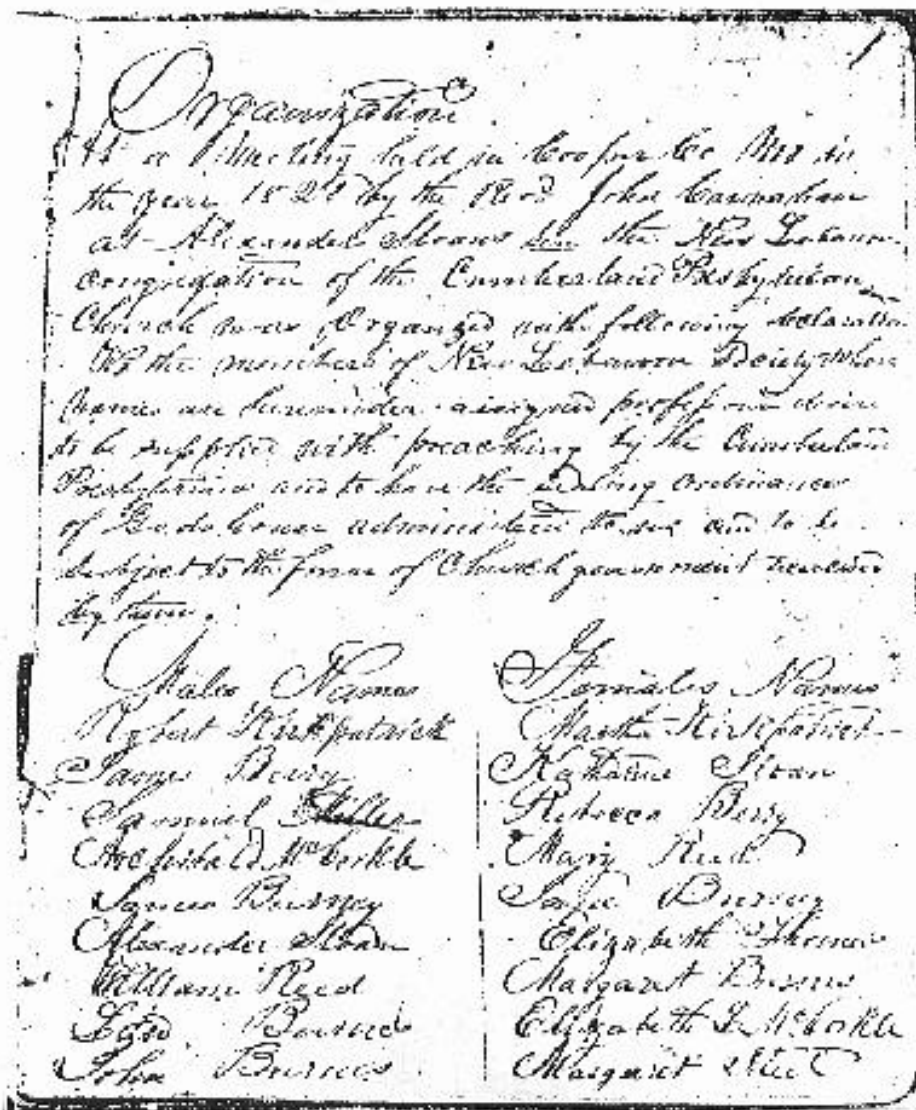 1
Organization
At a Meeting held in Cooper Co Mo in
the year 1820 by the Revd John Carnahan
at Alexander Sloans Sen the New Lebanon
congregation of the Cumberland Presbyterian
Church was Organized with following declaration
We the members of New Lebanon Society whose
names are hereunder assigned profess our desire
to be supplied with preaching by the Cumberland
Presbyterians and to have the sealing ordinances
of Gods house administered to us and to be
subject to the form of Church government received
by them.
Males Names
Robert Kirkpatrick
James Berry
Samuel
Archibald McCorkle
James Burney
Alexander Sloan
William Reed
John Burney
Females Names
Martha Kirkpatrick
Katharine Sloan
Rebecca Berry
Mary Reed
Burney
Elizabeth Thomas
Margaret
Elizabeth L McCorkle
Margaret